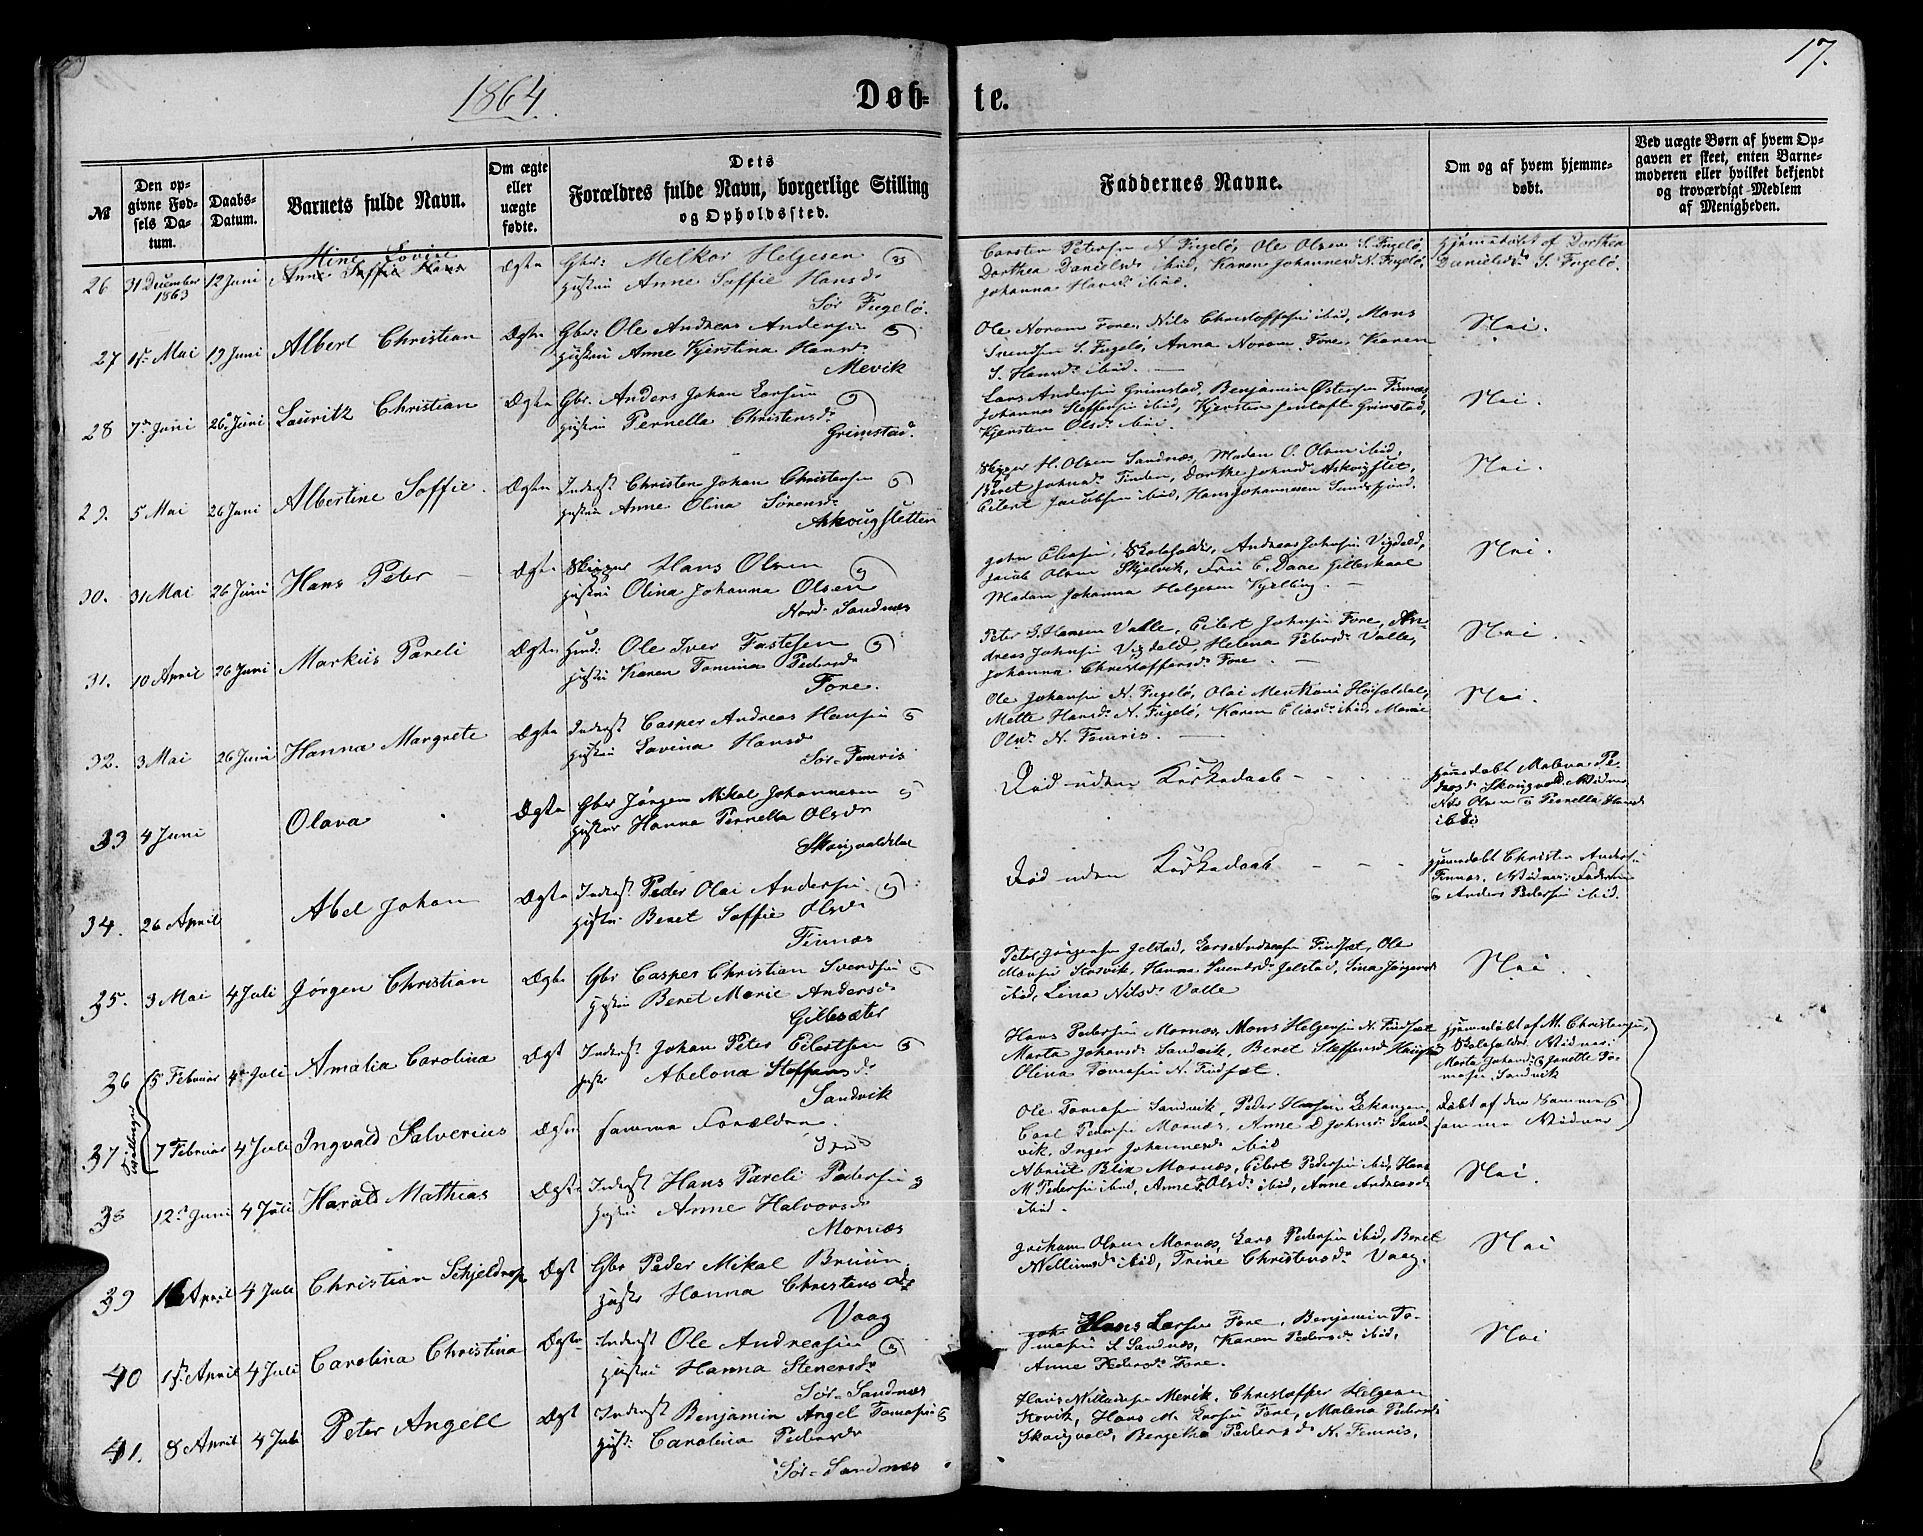 1864
Døb= te.
17.
№
Den op-
givne Fød-
sels Da-
tum.
Daabs-
Datum.
Barnets fulde Navn.
Om ægte
eller
uægte
fødte.
Dets
Forældres fulde Navn, borgerlige Stilling
og Opholdssted.
Faddernes Navne.
Om og af hvem hjemme-
døbt.
Ved uægte Børn af hvem Op-
gaven er skeet, enten Barne-
moderen eller hvilket bekjendt
og troværdigt Medlem
af Menigheden.
26 31 December 1863 12 Juni
Anne Soffie Hans
Ægte Gbr: Melkor Helgesen
Hustru Anne Soffie Hansd.
Sør Fugelø.
Carsten Petersen N. Fugelø, Ole Olsen S. Fugelø,
Dorthea Danielsd. ibid, Karen Johannesd. N. Fugelø,
Johanna Hansd. ibid.
Hjemmedøbt af Dorthea
Danielsd. S. Fugelø.
27 15 Mai 19 Juni Albert Christian
Ægte Gbr: Ole Andreas Andersen
Hustru Anne Kjerstina Hansd.
Mevik
Ole Noram Fore, Nils Christoffersen ibid, Mons
Svendsen S. Fugelø, Anna Noram Fore, Karen
S. Hansd. ibid.
Nei.
28 7 Juni 26 Juni Lauritz Christian
Ægte Gbr. Anders Johan Larsen
Hustru Pernella Christensd.
Grimstad.
Lars Andersen Grimstad, Benjamin Østensen Finnæs,
Johannes Steffensen ibid, Kjersten Jentoft Grimstad,
Kjersten Olsd. ibid.
Nei.
29. 5 Mai 26 Juni Albertine Soffie.
Ægte Inderst Christen Johan Christensen
Hustru Anne Olina Sørensd.
Askougsletten
Skipper H. Olsen Sandnæs, Madam O. Olsen ibid,
Beret Johnsd. Finden, Dorthe Johnsd. Askougslet,
Eilert Jacobsen ibid, Hans Johannesen Sundsfjord.
Nei.
30. 31 Mai 26 Juni Hans Peter
Ægte Skipper Hans Olsen
Hustru Olina Johanna Olsen
Nord-Sandnæs
John Eliasen, Skoleholder, Andreas Johnsen Vigdal,
Jacob Olsen Skjelvik, Fru E. Daae Gilleskaal
Madam Johanna Helgesen Kjelling.
Nei.
31. 10 April 26 Juni Markus Pareli
Ægte Husm. Ole Iver Fastesen
Hustru Karen Tomina Pedersd.
Fore.
Peter G. Hansen Valle, Eilert Johnsen Fore, An-
dreas Johnsen Vigdal, Helena Petersd. Valle,
Johanna Christoffersd. Fore.
Nei.
32. 3 Mai 26 Juni Hanna Margrete
Ægte Inderst Casper Andreas Hansen
Hustru Lavina Hansd.
Sør-Femris
Ole Johansen N. Fugelø, Olai Mentsoni Høifoldal,
Mette Hansd. N. Fugelø, Karen Eliasd. ibid, Marie
Olsd. N. Femris.
Nei.
33 4 Juni Olava
Ægte Gbr Jørgen Mikal Johannesen
Hustru Hanna Pernella Olsd.
Skougvoldstad
Død uden Kirkedaab
Hjemmedøbt Malena Pe-
dersd. Skougvold, Vidner
Nils Olsen & Pernella Hansd.
ibid
34. 26 April Abel Johan
Ægte Inderst Peder Olai Andersen
Hustru Beret Soffie Olsd.
Finnæs
Død uden Kirkedaab
Hjemmedøbt Christen Andersen
Finnæs, Vidner: Faderen
& Anders Pedersen ibid.
35. 3 Mai 4 Juli Jørgen Christian
Ægte Gbr Casper Christian Svendsen
Hustru Beret Marie Andersd.
Gillesæter
Peter Jørgensen Jelstad, Lars Andreasen Findset, Ole
Monsen Kosvik, Hanna Svendsd. Jelstad, Lina Jørgensd.
ibid, Lina Nilsd. Valle
Nei
36 5 Februar 4 Juli Amalia Carolina
Ægt Inderst Johan Peter Eilertsen
Hustr Abelona Steffensd.
Sandvik
Hans Pedersen Mornæs, Mons Helgesen N. Findset
Marta Johansd. Sandvik, Beret Steffensd.
Olina Tomasen N. Findset.
Hjemmedøbt af M. Christensen,
Skoleholder, Vidner:
Marta Johansd. & Janette To-
masen Sandvik
37 Tvillinger 7 Februar 4 Juli Ingvald Salverius
Ægte samme Forældre.
Ibid
Ole Tomasen Sandvik, Peder Hansen
Carl Pedersen Mornæs, Anne D Johnsd. Sand-
vik, Inger Johannesd. ibid
Døbt af den samme &
samme Vidner
38 12 Juni 4 Juli Harald Mathias
Ægte Inderst Hans Pareli Pedersen
Hustru Anne Halvorsd.
Mornæs
Abriet Blix Mornæs, Eilert Pedersen ibid, Hans
M. Pedersen ibid, Anne Olsd. ibid, Anne Andreasd.
ibid.
Nei.
39 16 April 4 Juli Christian Schjeldrop
Ægt Gbr Peder Mikal Bruun.
Hustr Hanna Christensd.
Vaag
Jochum Olsen Mornæs, Lars Pedersen ibid, Beret
Willumsd. ibid, Trine Christensd. Vaag.
Nei
40 15 April 4 Juli Carolina Christina
Ægte Inderst Ole Andreasen
Hustru Hanna Stenersd.
Sør-Sandnæs
Hans Larsen Fore, Benjamin To-
masen S. Sandnæs, Karen Pedersd. ibid,
Anne Pedersd. Fore.
Nei
41. 8 April 4 Juli Peter Angell
Ægt Inderst Benjamin Angel Tomasen
Hust: Carolina Pedersd.
Sør-Sandnæs
Hans Willumsen Mevik, Christoffer Helgesen
Kovik, Hans M. Larsen Fore, Malena Pedersd.
Skougvold, Bergetha Pedersd. N. Femris.